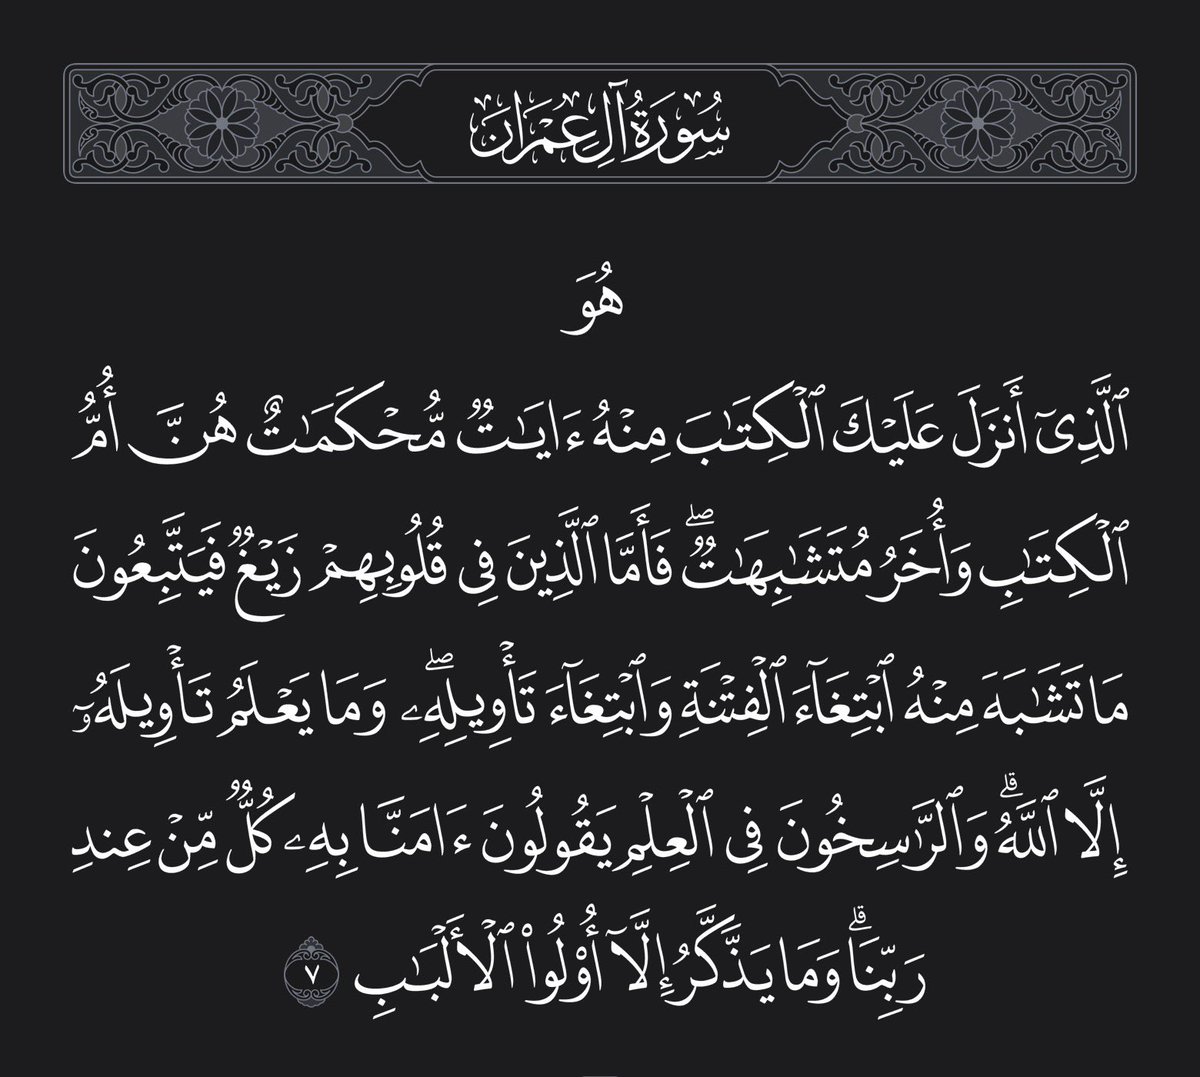 سُورَةُ آلِ عِمْرَان
هُوَ
ٱلَّذِىٓ أَنزَلَ عَلَيْكَ ٱلْكِتَـٰبَ مِنْهُ ءَايَـٰتٌ مُّحْكَمَـٰتٌ هُنَّ أُمُّ
ٱلْكِتَـٰبِ وَأُخَرُ مُتَشَـٰبِهَـٰتٌ ۖ فَأَمَّا ٱلَّذِينَ فِى قُلُوبِهِمْ زَيْغٌ فَيَتَّبِعُونَ
مَا تَشَـٰبَهَ مِنْهُ ٱبْتِغَآءَ ٱلْفِتْنَةِ وَٱبْتِغَآءَ تَأْوِيلِهِۦ ۖ وَمَا يَعْلَمُ تَأْوِيلَهُۥٓ
إِلَّا ٱللَّهُ ۗ وَٱلرَّٰسِخُونَ فِى ٱلْعِلْمِ يَقُولُونَ ءَامَنَّا بِهِۦ كُلٌّ مِّنْ عِندِ
رَبِّنَا ۗ وَمَا يَذَّكَّرُ إِلَّآ أُو۟لُوا۟ ٱلْأَلْبَـٰبِ ٧